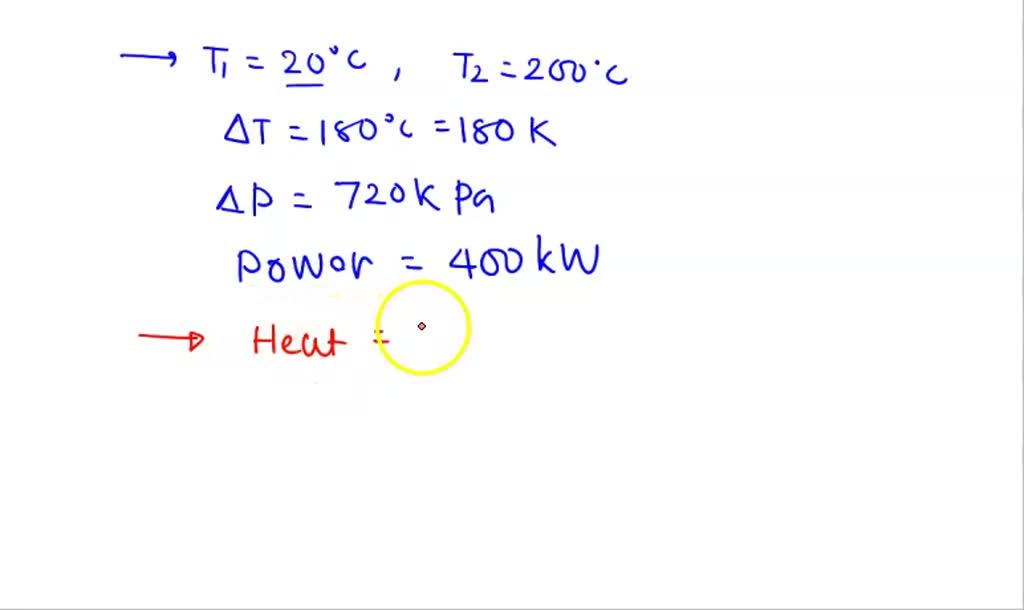 → T₁ = 20°C , T₂ = 200°C
ΔT = 180°C = 180 K
ΔP = 720k Pa
Power = 400 kW
→ Heat =